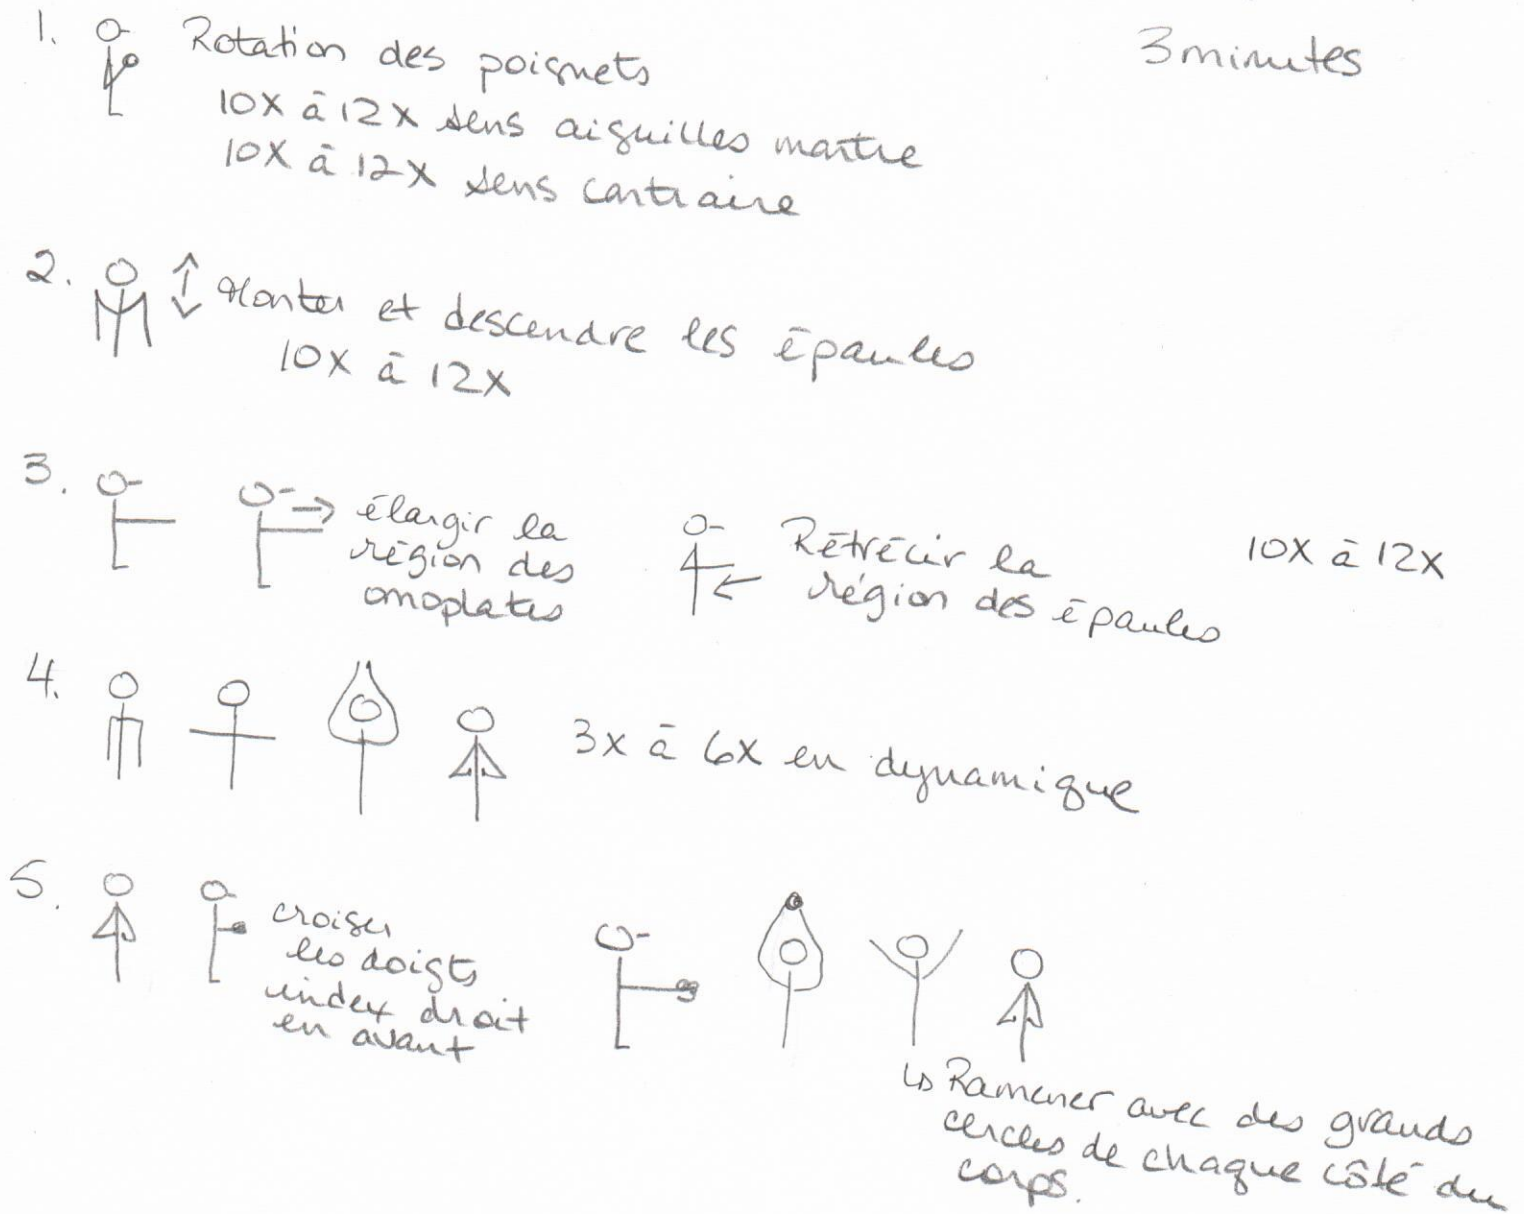 1. Rotation des poignets
3 minutes
10X à 12X sens aiguilles montre
10X à 12X sens contraire
2. Monter et descendre les épaules
10X à 12X
3.
élargir la
région des
omoplates
Rétrécir la
région des épaules
10X à 12X
4.
3X à 6X en dynamique
5.
croiser
les doigts
index droit
en avant
↳ Ramener avec des grands
cercles de chaque côté du
corps.